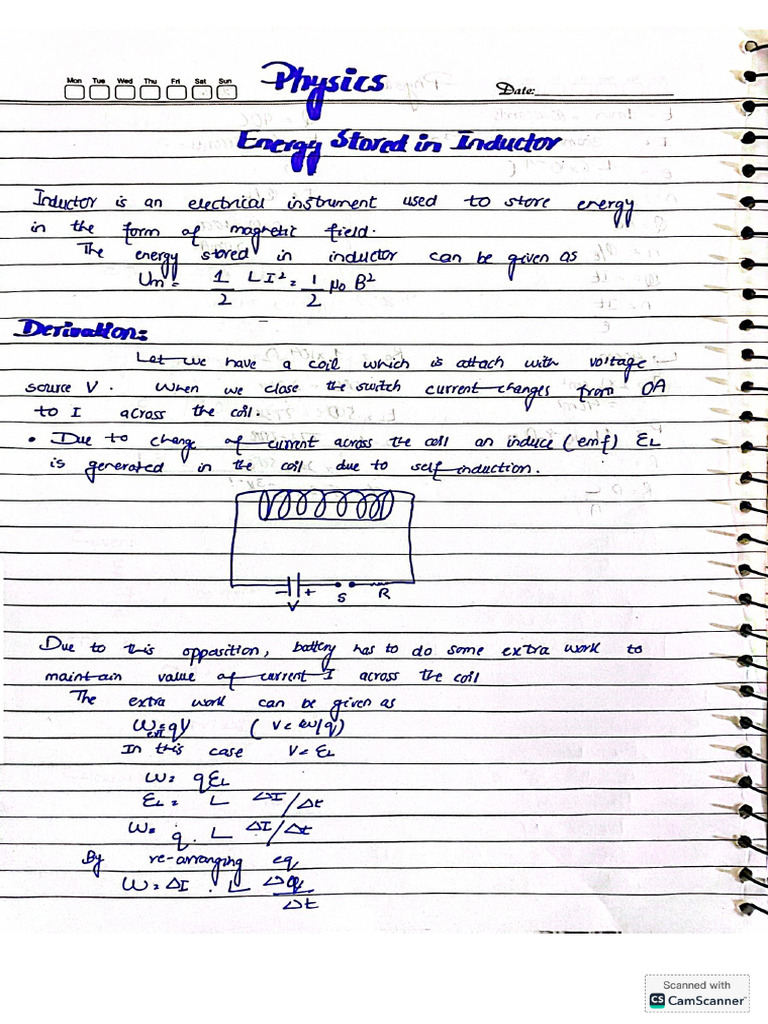 Mon Tue Wed Thu Fri Sat Sun
Physics
Date:
Energy Stored in Inductor
Inductor is an electrical instrument used to store energy
in the form of magnetic field.
The energy stored in inductor can be given as
Um = 1/2 LI² = 1/2 μ₀ B²
Derivation:
Let we have a coil which is attach with voltage
source V. When we close the switch current changes from 0A
to I across the coil.
• Due to change of current across the coil an induce (emf) EL
is generated in the coil due to self induction.
- + S R
V
Due to this opposition, battery has to do some extra work to
maintain value of current I across the coil
The extra work can be given as
Wext = qV (V = W/q)
In this case V = EL
W = qEL
EL = L ΔI/Δt
W = q . L ΔI/Δt
By re-arranging eq
W = ΔI . L Δq/Δt
Scanned with
CS CamScanner